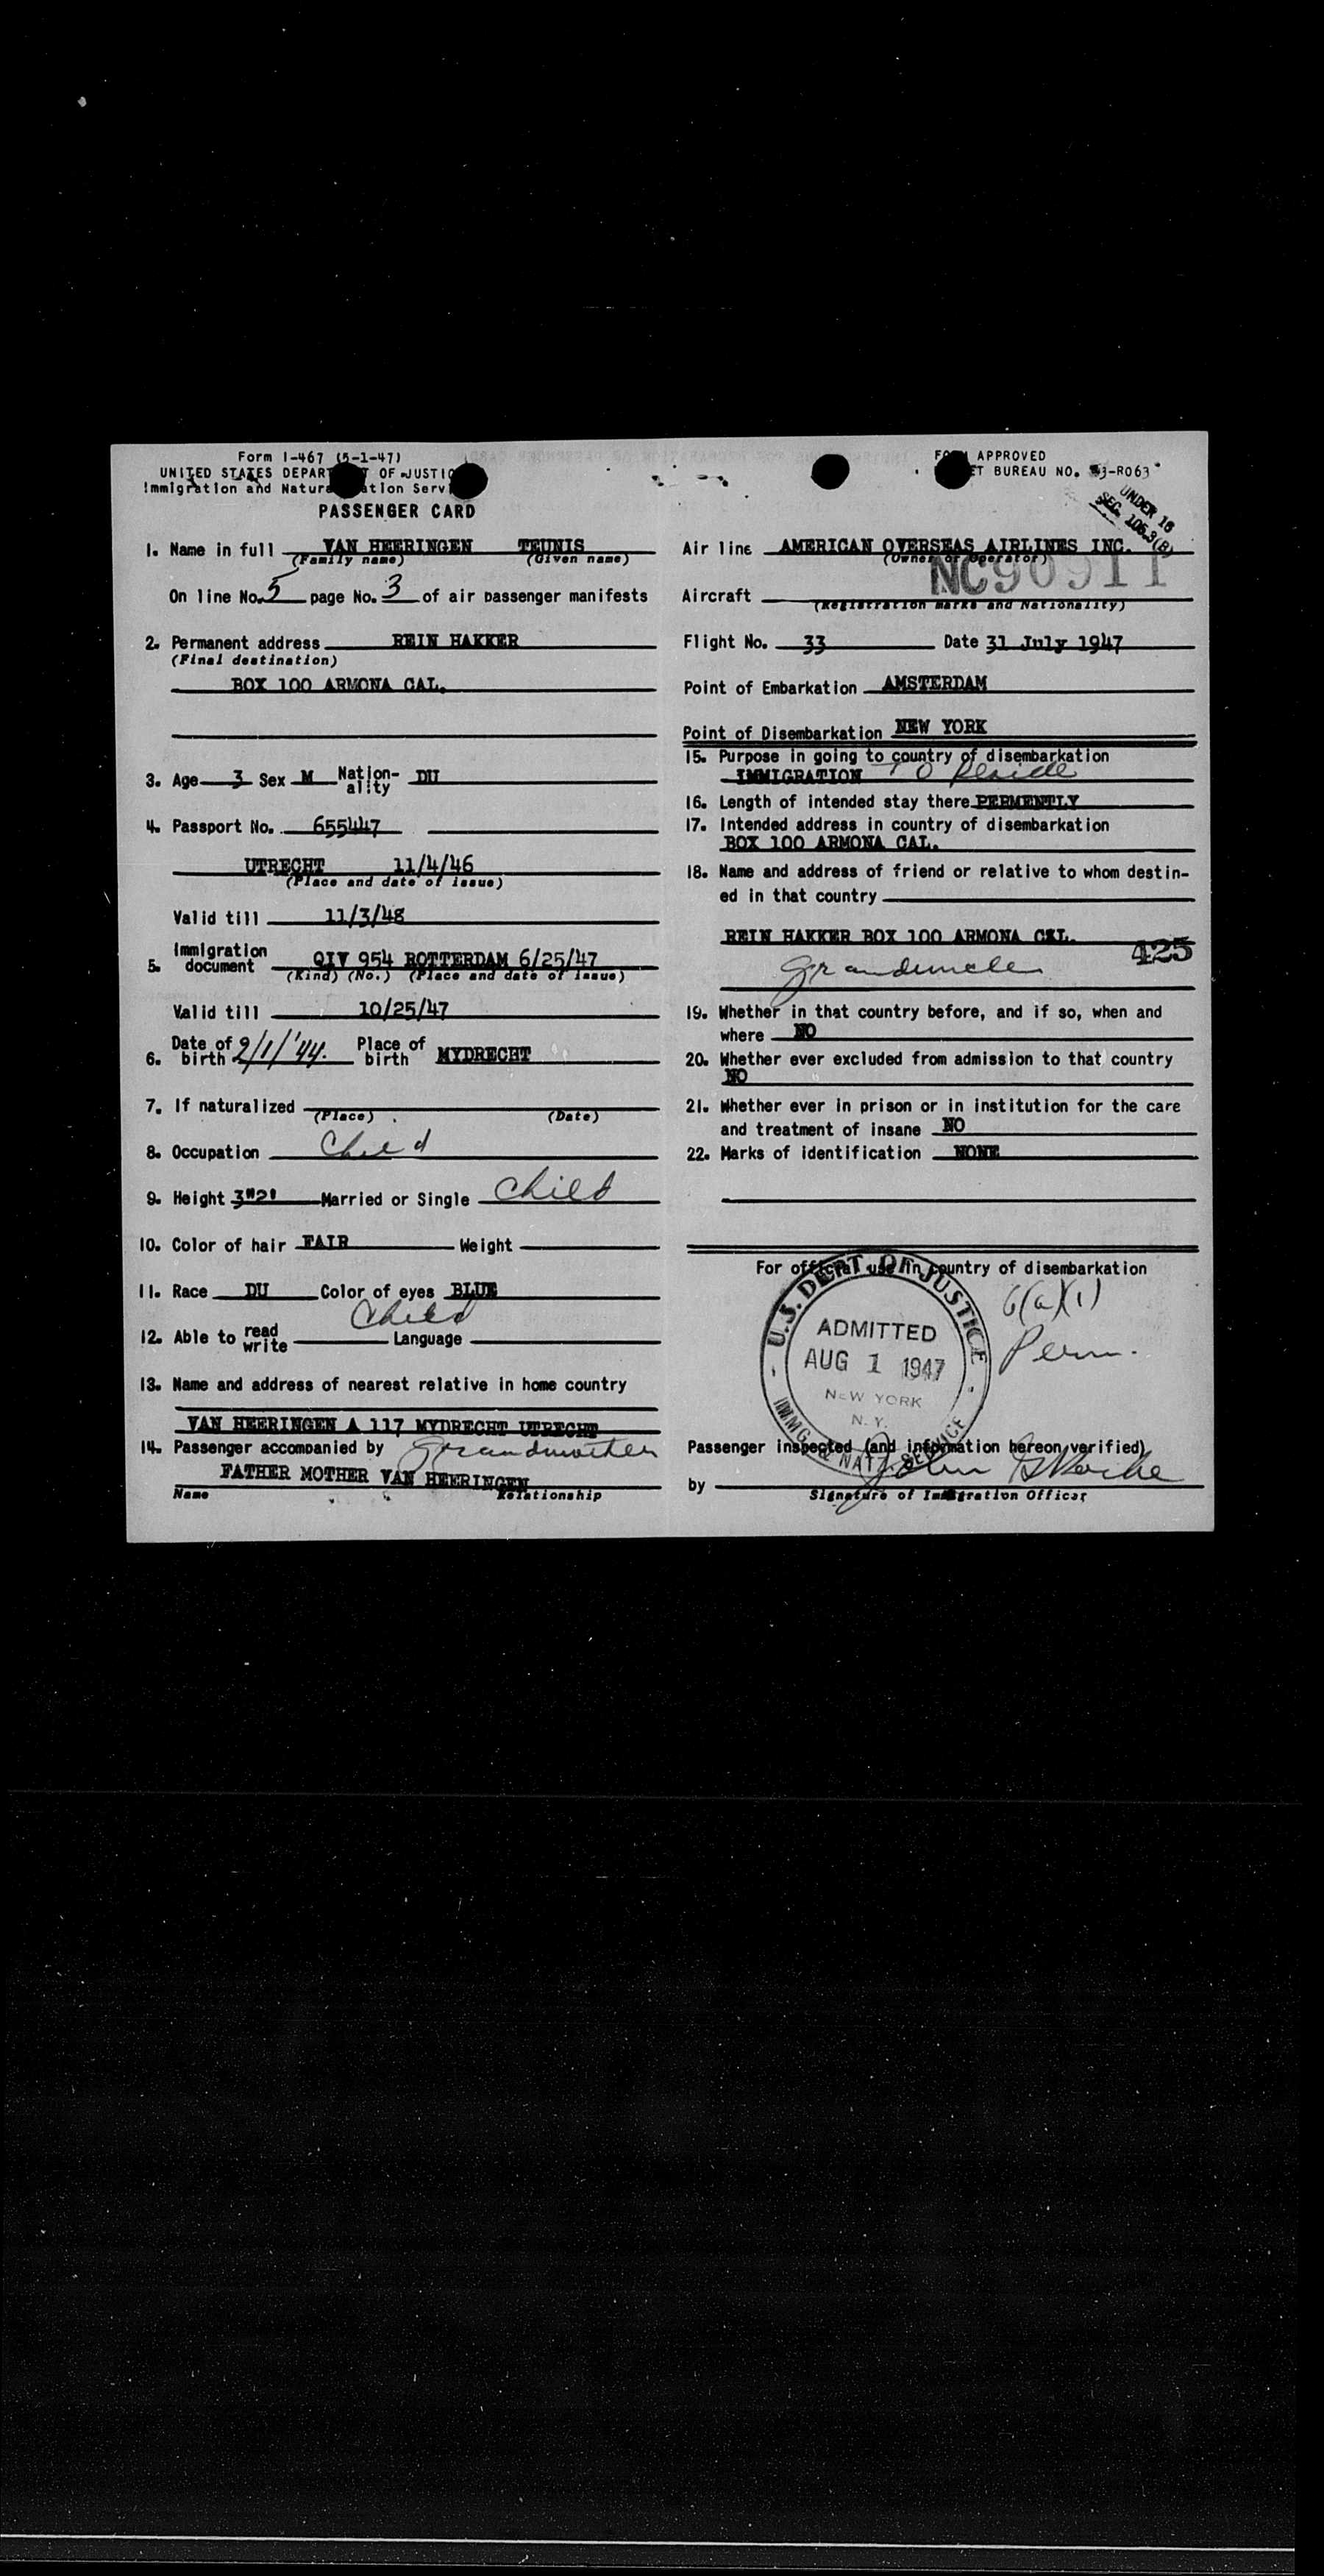 Form I-467 (5-1-47)
UNITED STATES DEPART T OF JUSTIC
Immigration and Natura ation Serv
PASSENGER CARD
1. Name in full VAN HEERINGEN TEUNIS
(Family name) (Given name)
On line No. 5 page No. 3 of air passenger manifests
2. Permanent address REIN HAKKER
(Final destination)
BOX 100 ARMONA CAL.
3. Age 3 Sex M Nation-ality DU
4. Passport No. 655447
UTRECHT 11/4/46
(Place and date of issue)
Valid till 11/3/48
5. Immigration document QIV 954 ROTTERDAM 6/25/47
(Kind) (No.) (Place and date of issue)
Valid till 10/25/47
6. Date of birth 2/1/'44. Place of birth MYDRECHT
7. If naturalized
(Place) (Date)
8. Occupation Child
9. Height 3"2' Married or Single Child
10. Color of hair FAIR Weight
11. Race DU Color of eyes BLUE
Child
12. Able to read write Language
13. Name and address of nearest relative in home country
VAN HEERINGEN A 117 MYDRECHT UTRECHT
14. Passenger accompanied by Grandmother
FATHER MOTHER VAN HEERINGEN
Name Relationship
FORM APPROVED
ET BUREAU NO. 43-R063
UNDER 16
SEC. 106.3(B)
Air line AMERICAN OVERSEAS AIRLINES INC.
(Owner or Operator)
Aircraft NC90911
(Registration marks and Nationality)
Flight No. 33 Date 31 July 1947
Point of Embarkation AMSTERDAM
Point of Disembarkation NEW YORK
15. Purpose in going to country of disembarkation
IMMIGRATION To Reside
16. Length of intended stay there PERMENTLY
17. Intended address in country of disembarkation
BOX 100 ARMONA CAL.
18. Name and address of friend or relative to whom destin-
ed in that country
REIN HAKKER BOX 100 ARMONA CAL.
425
Granduncle
19. Whether in that country before, and if so, when and
where NO
20. Whether ever excluded from admission to that country
NO
21. Whether ever in prison or in institution for the care
and treatment of insane NO
22. Marks of identification NONE
For official use in country of disembarkation
U.S. DEPT. OF JUSTICE
ADMITTED
AUG 1 1947
NEW YORK
N.Y.
IMMIG. & NATZ. SERVICE
6(a)(1)
Perm.
Passenger inspected (and information hereon verified)
by John
Signature of Immigration Officer